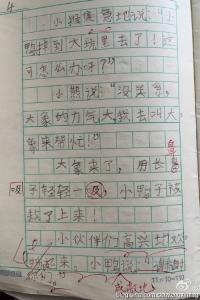 4
小猴焦急地说："小
鸭掉到大坑里去了！这
可怎么办呀？"
小熊说："没关系，
大象的力气大我去叫大
象来帮忙！"
鼻
大象来了，用长鼻
吸
子轻轻一吸，小鸭子被
救了上来！
小伙伴们高兴地欢
起来 小鸭说 谢谢
成激地